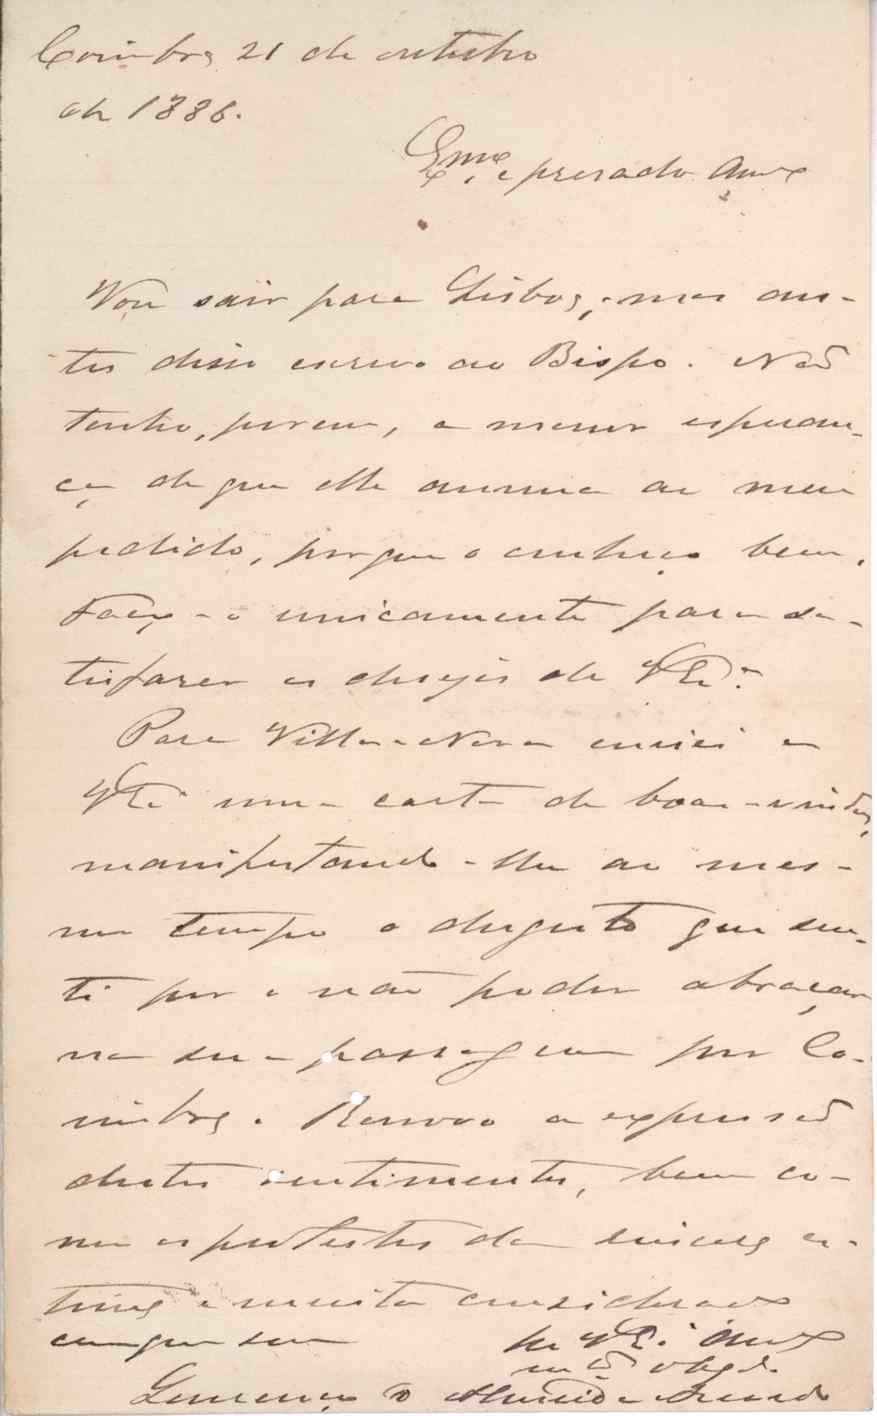 Coimbra 21 de outubro
de 1886.
Exmo. e presado Amo
Vou sair para Lisboa, mas an-
tes disso escrevo ao Bispo. Não
tenho, porem, a menor esperan-
ça de que elle annua ao meu
pedido, porque o conheço bem.
Faço-o unicamente para sa-
tisfazer os desejos de V. Exa.
Para Villa-Nova enviei a
V. Exa uma carta de boas-vindas,
manifestando-lhe ao mes-
mo tempo o desgosto que sen-
ti por o não poder abraçar
na sua passagem por Co-
imbra. Renovo a expressão
destes sentimentos, bem co-
mo os protestos da sincera es-
tima e muita consideração
com que sou
De V. Exa. Amo
mto obgdo.
Lourenço d'Almeida e Azevedo